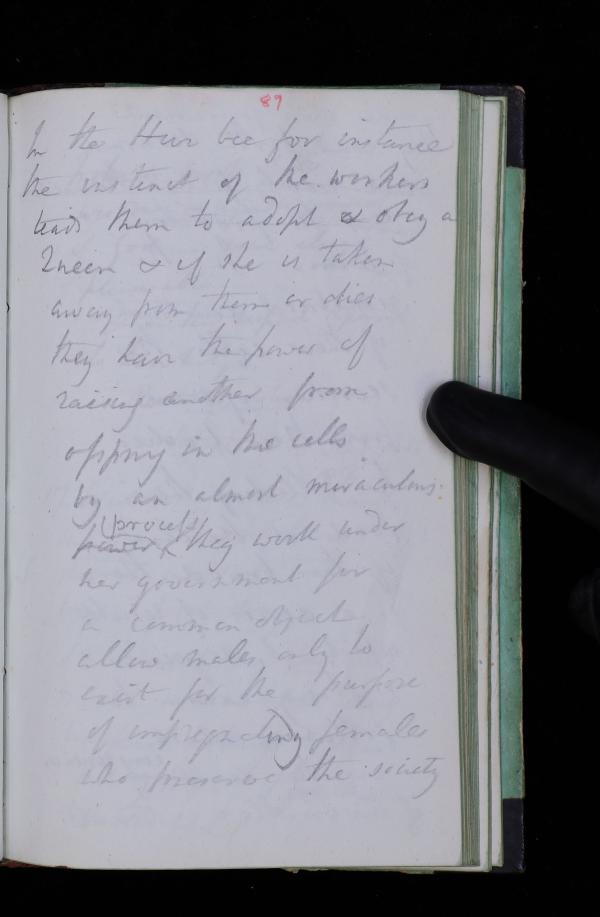 89
In the Hive bee for instance
the instinct of the workers
leads them to adopt & obey a
Queen & if she is taken
away from them or dies
they have the power of
raising another from
offspring in the cells
by an almost miraculous
process
power & they work under
her government for
a common object
allow males only to
exist for the purpose
of impregnating females
who preserve the society